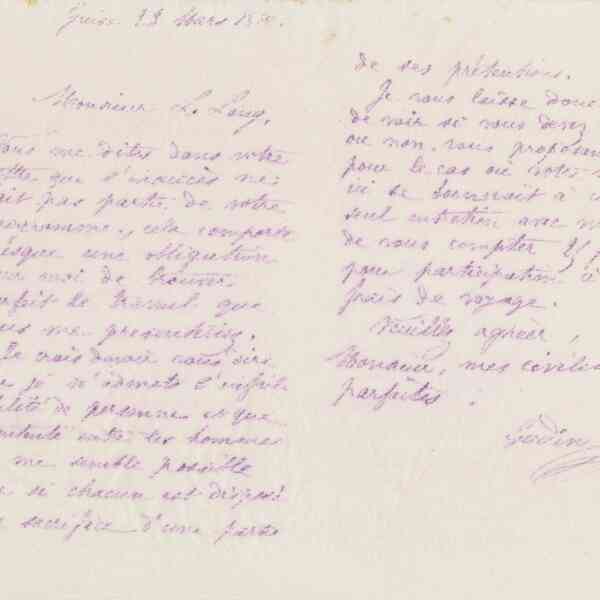 Guise 22 Mars 18
Monsieur L. Long,
Vous me dites dans votre
que l'insuccès ne
fait pas partie de votre
programme, cela comporte
presque une obligation
pour moi de trouver
parfait le travail que
vous me présenterez.
Je crois devoir vous dire
que je n'admets l'infailli
bilité de personne et que
l'entente entre les hommes
me semble possible
que si chacun est disposé
au sacrifice d'une partie
de ses prétentions.
Je vous laisse donc
de voir si vous devez
ou non, vous proposant
pour le cas où votre
ici se bornerait à
seul entretien avec
de vous compter 25
pour participation
frais de voyage.
Veuillez agréer,
Monsieur, mes civilités
parfaites.
Godin